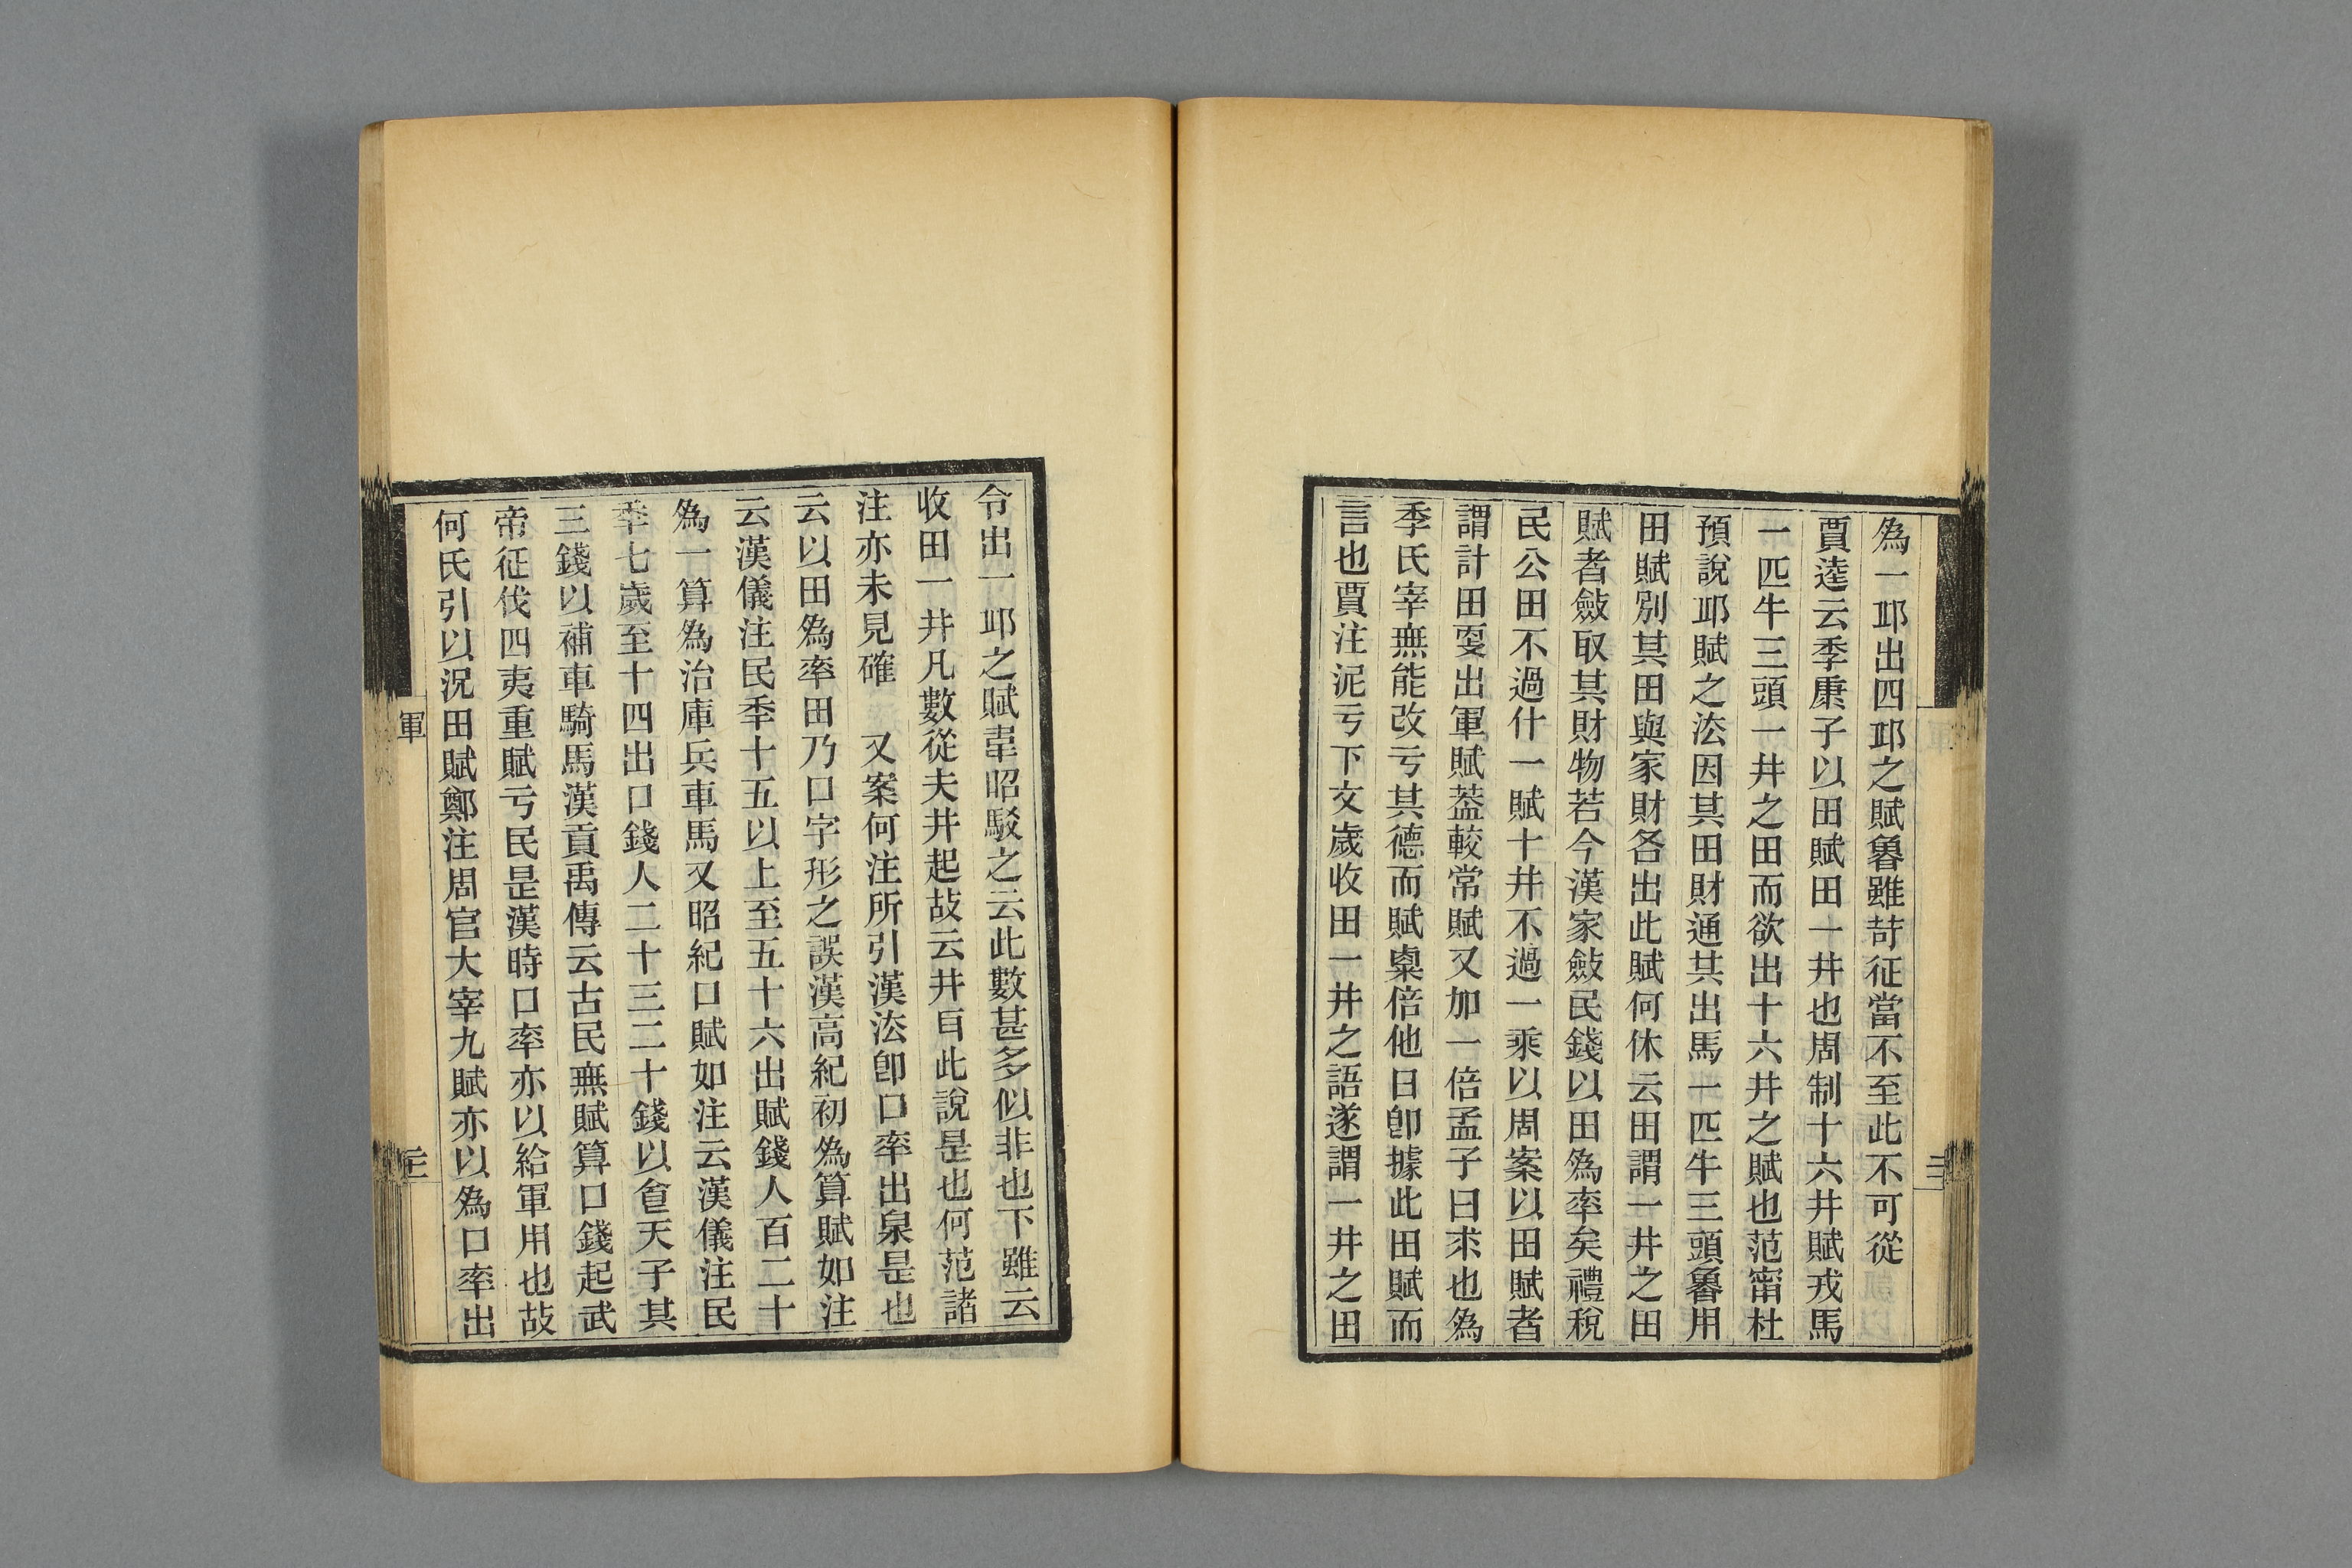 為一邱出四邱之賦魯雖苛征當不至此不可從
賈逵云季康子以田賦田一井也周制十六井賦戎馬
一匹牛三頭一井之田而欲出十六井之賦也范甯杜
預說邱賦之法因其田財通共出馬一匹牛三頭魯用
田賦別其田與家財各出此賦何休云田謂一井之田
賦者斂取其財物若今漢家斂民錢以田為率矣禮稅
民公田不過什一賦十井不過一乘以周案以田賦者
謂計田叓出軍賦葢較常賦又加一倍孟子曰求也為
季氏宰無能改亏其德而賦稾倍他日卽據此田賦而
言也賈注泥亏下文歲收田一井之語遂謂一井之田
令出一邱之賦韋昭駁之云此數甚多似非也下雖云
收田一井凡數從夫井起故云井耳此說是也何范諸
注亦未見確　又案何注所引漢法卽口率出泉是也
云以田為率田乃口字形之誤漢高紀初為算賦如注
云漢儀注民秊十五以上至五十六出賦錢人百二十
為一算為治庫兵車馬又昭紀口賦如注云漢儀注民
秊七歲至十四出口錢人二十三二十錢以食天子其
三錢以補車騎馬漢貢禹傳云古民無賦算口錢起武
帝征伐四夷重賦亏民是漢時口率亦以給軍用也故
何氏引以況田賦鄭注周官大宰九賦亦以為口率出
軍